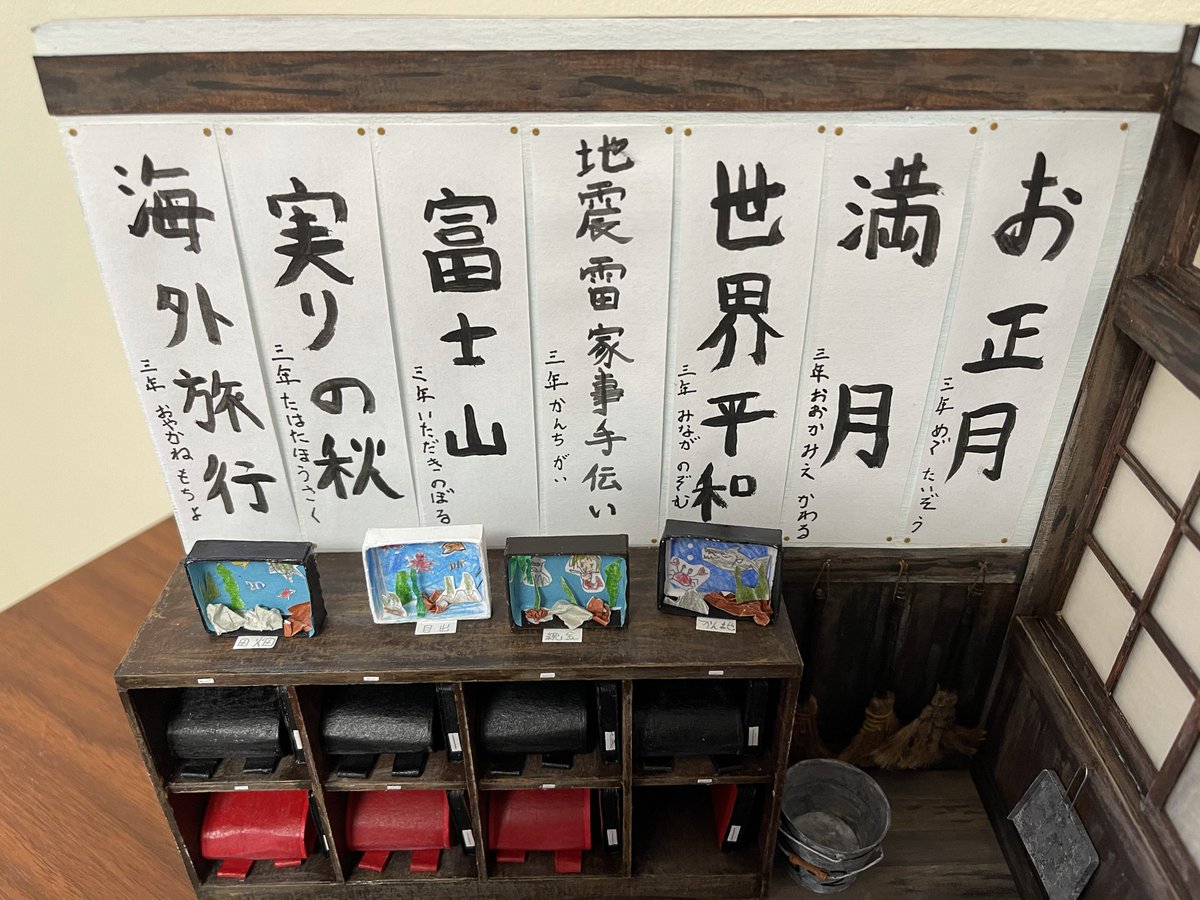 お正月
三年 めで たいぞう
満月
三年 おおかみえ かわる
世界平和
三年 みなが のぞむ
地震雷家事手伝い
三年 かんちがい
富士山
三年 いただきのぼる
実りの秋
三年 たはたほうさく
海外旅行
三年 おやかね もちよ
田畑
親金